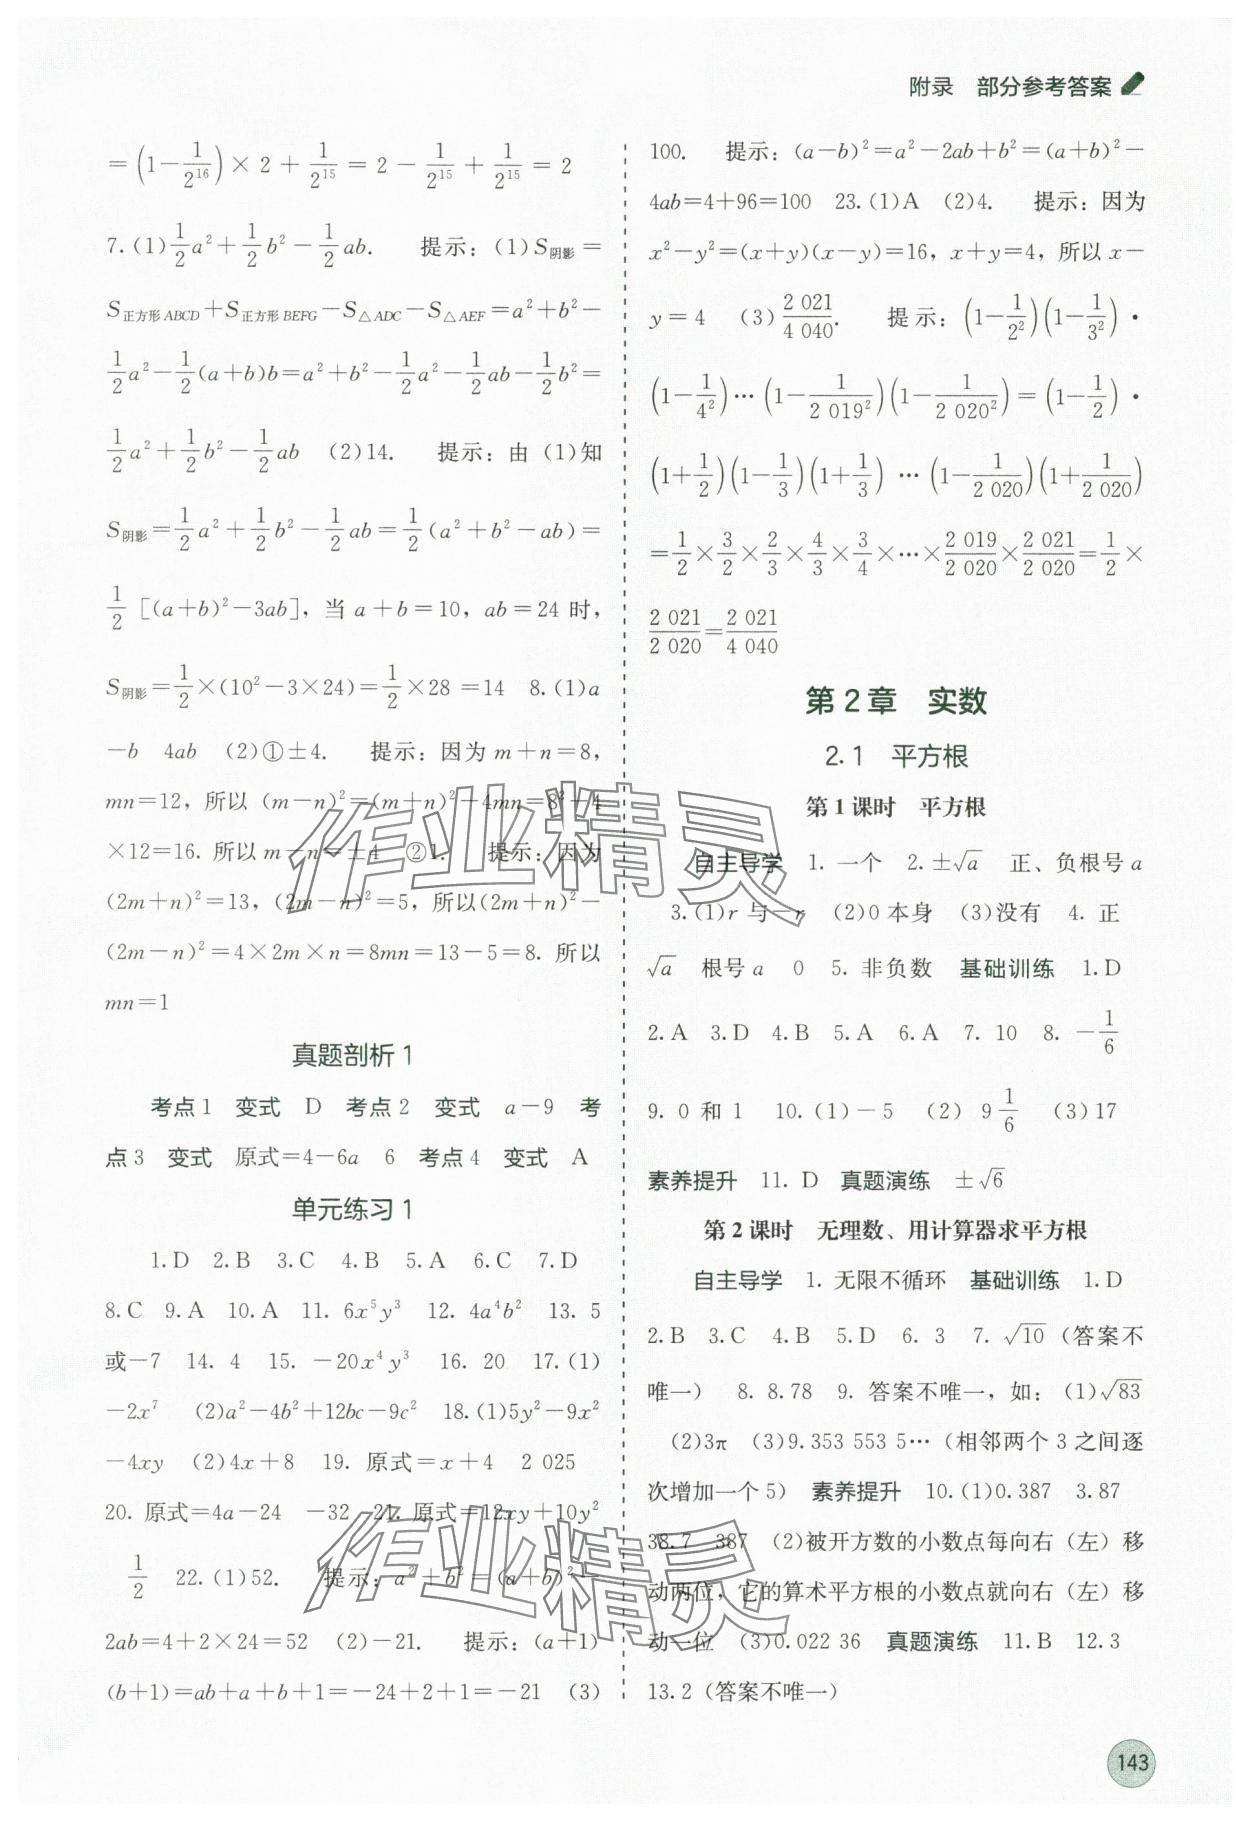 附录 部分参考答案
=(1-1/2^16)×2+1/2^15=2-1/2^15+1/2^15=2
7.(1)1/2a²+1/2b²-1/2ab. 提示：(1)S阴影=
S正方形ABCD+S正方形BEFG-S△ADC-S△AEF=a²+b²-
1/2a²-1/2(a+b)b=a²+b²-1/2a²-1/2ab-1/2b²=
1/2a²+1/2b²-1/2ab (2)14. 提示：由(1)知
S阴影=1/2a²+1/2b²-1/2ab=1/2(a²+b²-ab)=
1/2[(a+b)²-3ab]，当a+b=10，ab=24时，
S阴影=1/2×(10²-3×24)=1/2×28=14 8.(1)a
-b 4ab (2)①±4. 提示：因为m+n=8，
mn=12，所以(m-n)²=(m+n)²-4mn=8²-4
×12=16. 所以m-n=±4 ②1. 提示：因为
(2m+n)²=13，(2m-n)²=5，所以(2m+n)²-
(2m-n)²=4×2m×n=8mn=13-5=8. 所以
mn=1
真题剖析1
考点1 变式 D 考点2 变式 a-9 考
点3 变式 原式=4-6a 6 考点4 变式 A
单元练习1
1.D 2.B 3.C 4.B 5.A 6.C 7.D
8.C 9.A 10.A 11. 6x⁵y³ 12. 4a⁴b² 13. 5
或-7 14. 4 15. -20x⁴y³ 16. 20 17.(1)
-2x⁷ (2)a²-4b²+12bc-9c² 18.(1)5y²-9x²
-4xy (2)4x+8 19. 原式=x+4 2 025
20. 原式=4a-24 -32 21. 原式=12xy+10y²
1/2 22.(1)52. 提示：a²+b²=(a+b)²-
2ab=4+2×24=52 (2)-21. 提示：(a+1)
(b+1)=ab+a+b+1=-24+2+1=-21 (3)
100. 提示：(a-b)²=a²-2ab+b²=(a+b)²-
4ab=4+96=100 23.(1)A (2)4. 提示：因为
x²-y²=(x+y)(x-y)=16，x+y=4，所以x-
y=4 (3)2 021/4 040. 提示：(1-1/2²)(1-1/3²)·
(1-1/4²)…(1-1/2 019²)(1-1/2 020²)=(1-1/2)·
(1+1/2)(1-1/3)(1+1/3)…(1-1/2 020)(1+1/2 020)
=1/2×3/2×2/3×4/3×3/4×…×2 019/2 020×2 021/2 020=1/2×
2 021/2 020=2 021/4 040
第2章 实数
2.1 平方根
第1课时 平方根
自主导学 1. 一个 2. ±√a 正、负根号a
3.(1)r与-r (2)0本身 (3)没有 4. 正
√a 根号a 0 5. 非负数 基础训练 1.D
2.A 3.D 4.B 5.A 6.A 7. 10 8. -1/6
9. 0和1 10.(1)-5 (2) 9 1/6 (3)17
素养提升 11. D 真题演练 ±√6
第2课时 无理数、用计算器求平方根
自主导学 1. 无限不循环 基础训练 1.D
2.B 3.C 4.B 5.D 6. 3 7. √10（答案不
唯一） 8. 8.78 9. 答案不唯一，如：(1)√83
(2)3π (3)9.353 553 5…（相邻两个3之间逐
次增加一个5） 素养提升 10.(1)0.387 3.87
38.7 387 (2)被开方数的小数点每向右（左）移
动两位，它的算术平方根的小数点就向右（左）移
动一位 (3)0.022 36 真题演练 11.B 12.3
13.2（答案不唯一）
143
作业精灵
作业精灵